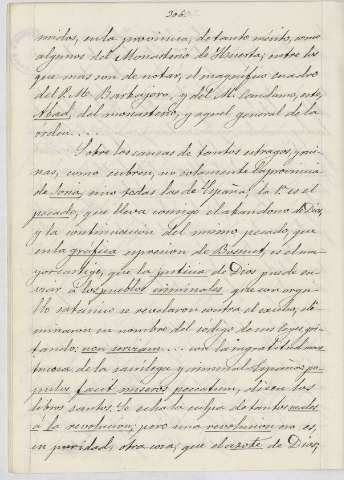 306
unidos, en la provincia, de tanto mérito, como
algunos del Monasterio de Huerta; entre los
que más son de notar, el magnífico cuadro
del P. M. Barbajero, y del M. Constano, este,
Abad, del monasterio, y aquel general de la
órden....
Sobre las causas de tantos estragos, y rui-
nas, como cubren, no solamente la provincia
de Soria, sino todas las de España; la 1ª es el
pecado, que lleva consigo el abandono de Dios,
y la continuacion del mismo pecado, que
en la gráfica espresion de Bossuet, es el ma-
yor castigo, que la justicia de Dios puede en-
viar á los pueblos criminales que con orgu-
llo satanico se revelaron contra el cielo, y
en nombre del código de sus leyes, gri-
tando: non serviam... con la ingratitud mons-
truosa de la sacrílega y criminal España: po-
pulos facit miseros peccatum, dicen los
libros santos. Se echa la culpa de tantos males
á la revolucion; pero una revolucion no es,
en puridad, otra cosa, que el azote de Dios;